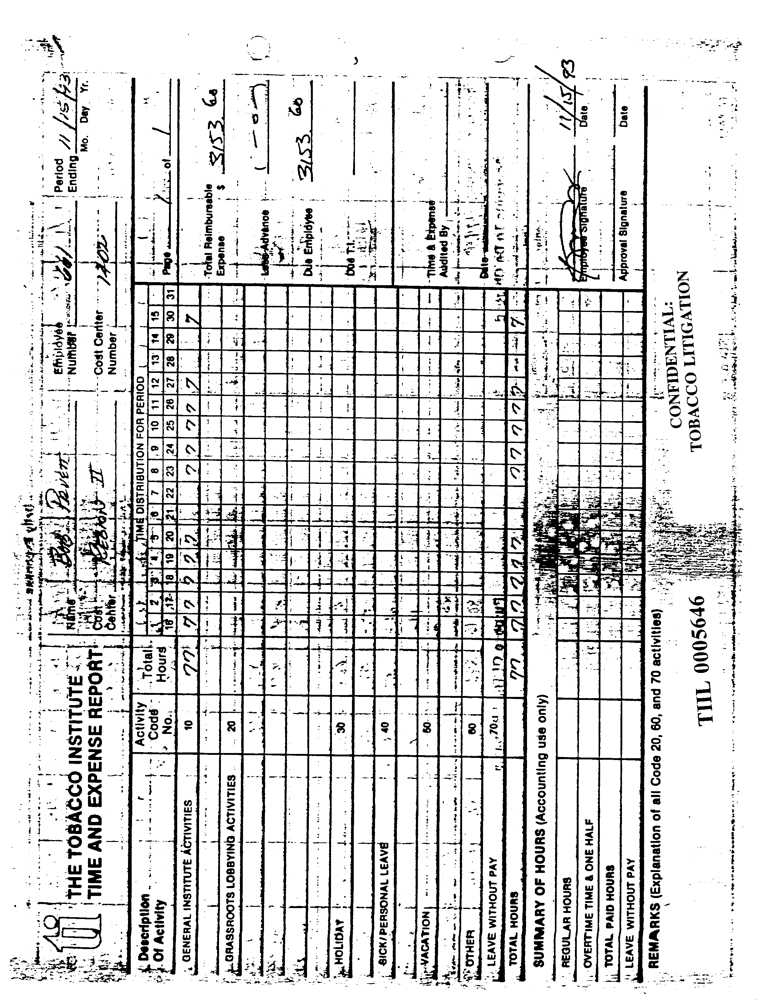 THE TOBACCO INSTITUTE
TIME AND EXPENSE REPORT
Name Bob
Cost Center Region II
Employee Number
Cost Center Number
Period Ending 11/15/93
Mo. Day Yr.
Description Of Activity
Activity Code No.
Total Hours
TIME DISTRIBUTION FOR PERIOD
1 2 3 4 5 6 7 8 9 10 11 12 13 14 15
16 17 18 19 20 21 22 23 24 25 26 27 28 29 30 31
Page 1 of 1
GENERAL INSTITUTE ACTIVITIES 10 77 7 7 7 7 7 7 7 7 7 7 7
GRASSROOTS LOBBYING ACTIVITIES 20
HOLIDAY 30
SICK/PERSONAL LEAVE 40
VACATION 50
OTHER 60
LEAVE WITHOUT PAY 70
TOTAL HOURS 77 7 7 7 7 7 7 7 7 7 7 7
Total Reimbursable Expense $ 3153 60
Less Advance (-0-)
Due Employee 3153 60
Due T.I.
Time & Expense Audited By
Date
SUMMARY OF HOURS (Accounting use only)
REGULAR HOURS
OVERTIME TIME & ONE HALF
TOTAL PAID HOURS
LEAVE WITHOUT PAY
Employee Signature
11/15/93
Date
Approval Signature
Date
REMARKS (Explanation of all Code 20, 60, and 70 activities)
CONFIDENTIAL:
TOBACCO LITIGATION
TIIL 0005646